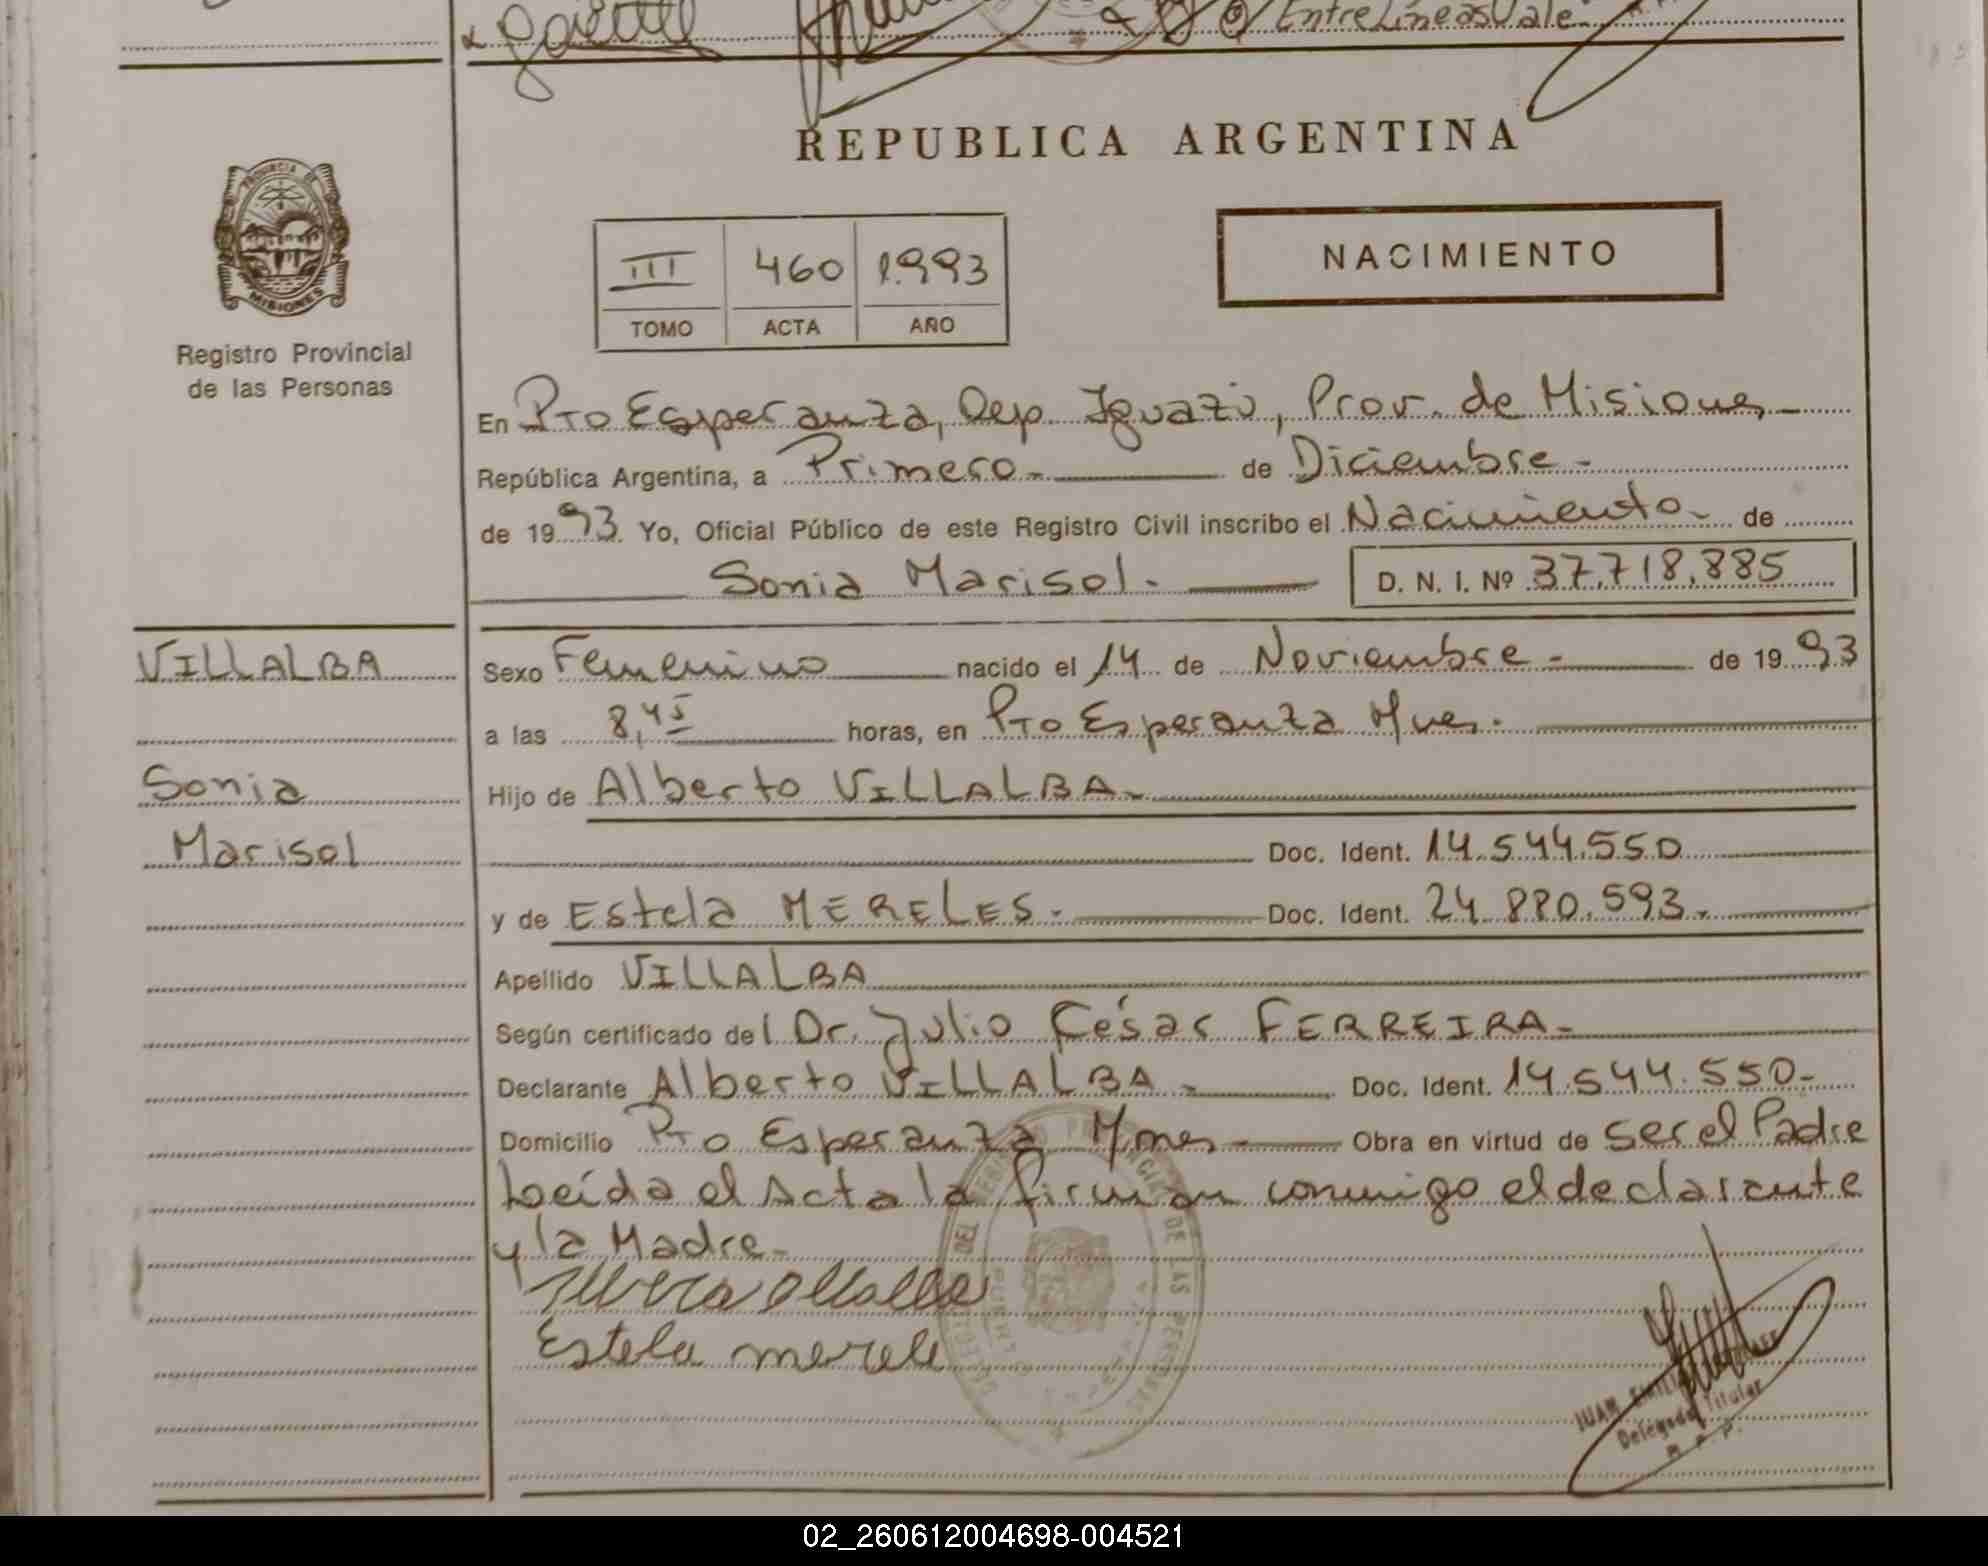 Entre Líneas Vale
REPUBLICA ARGENTINA
PROVINCIA DE
MISIONES
Registro Provincial
de las Personas
III 460 1.993
TOMO ACTA AÑO
NACIMIENTO
En Pto Esperanza, Dep. Iguazú, Prov. de Misiones
República Argentina, a Primero de Diciembre
de 1993 Yo, Oficial Público de este Registro Civil inscribo el Nacimiento de
Sonia Marisol. D. N. I. Nº 37.718.885
VILLALBA
Sonia
Marisol
Sexo Femenino nacido el 14 de Noviembre de 1993
a las 8,45 horas, en Pto Esperanza Mnes.
Hijo de Alberto VILLALBA
Doc. Ident. 14.544.550
y de Estela MERELES. Doc. Ident. 24.880.593.
Apellido VILLALBA
Según certificado del Dr. Julio César FERREIRA
Declarante Alberto VILLALBA Doc. Ident. 14.544.550-
Domicilio Pto Esperanza Mnes Obra en virtud de ser el Padre
Leída el Acta la firman conmigo el declarante
y la Madre
Estela merele
JUAN
Delegado Titular
R. P. P.
02_260612004698-004521